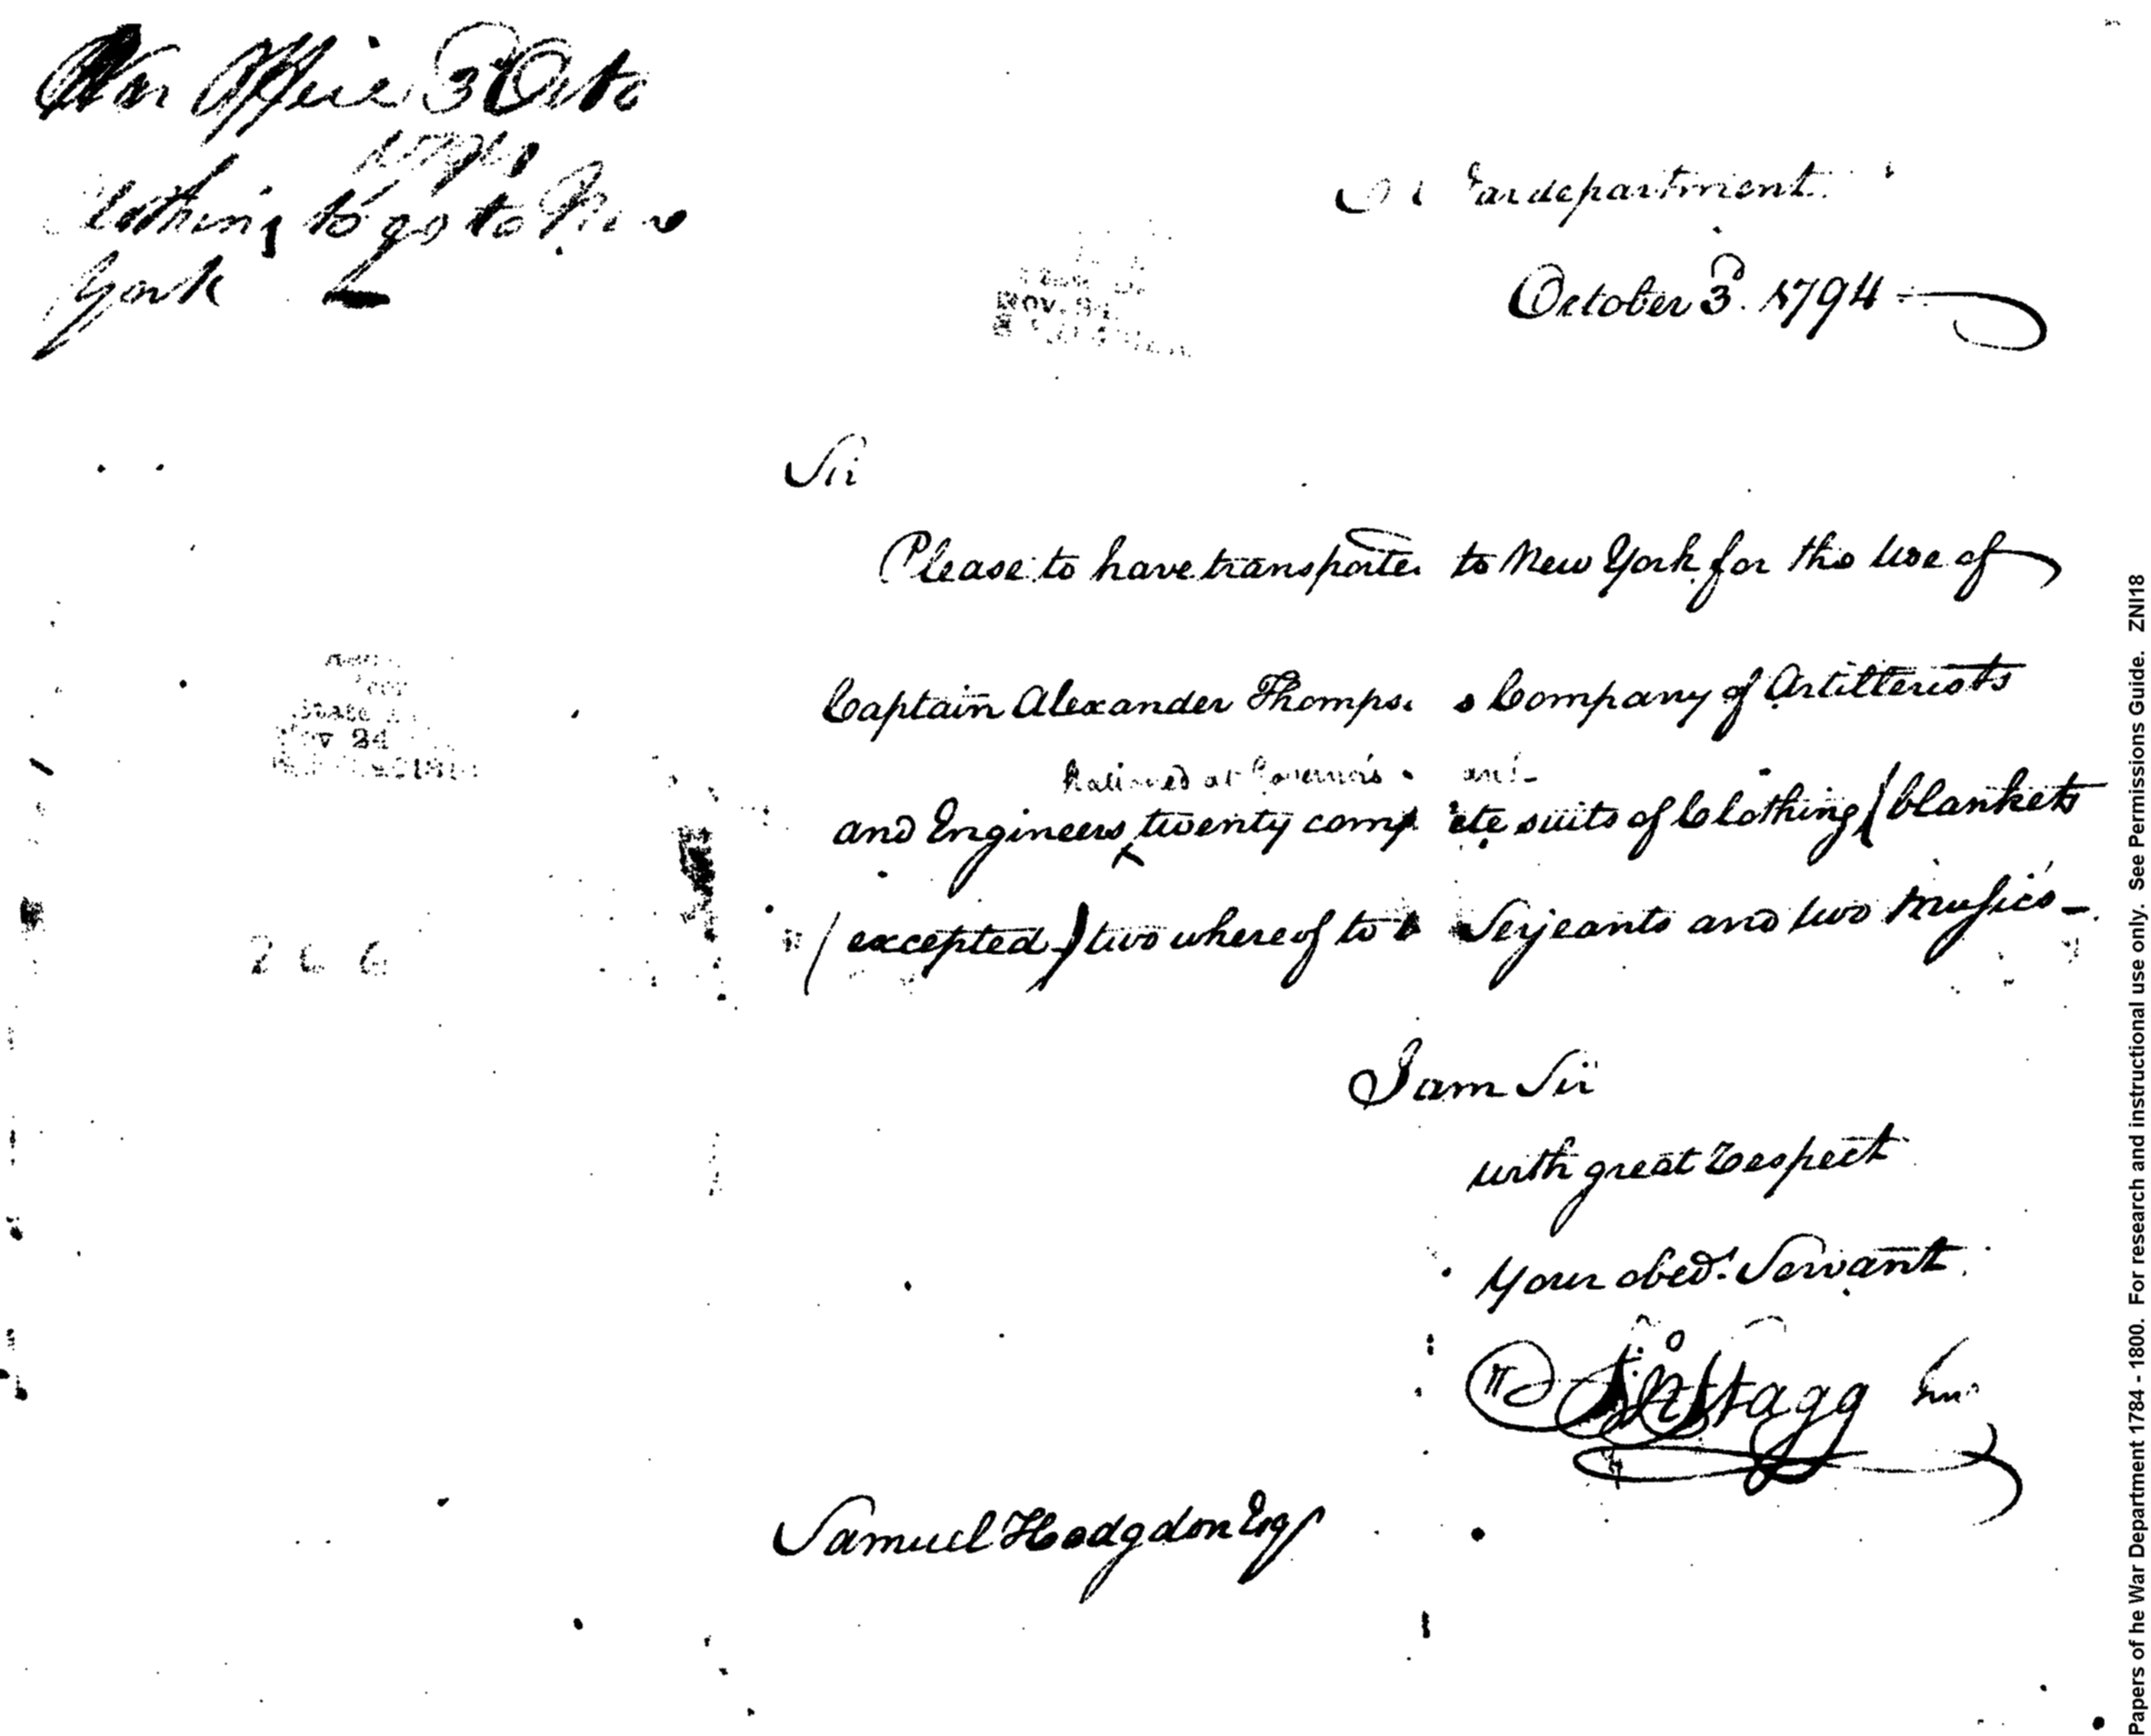 War Office 3 Octo
1794
Clothing to go to New
York
War department
October 3. 1794
Sir
Please to have transported to New York for the use of
Captain Alexander Thompsons Company of Artillerists
at Governors
and Engineers twenty complete suits of Clothing (blankets
(excepted) two whereof to be Serjeants and two musics
I am Sir
with great respect
Your obed. Servant
Jno Stagg Junr
Samuel Hodgdon Esqr
266
Papers of he War Department 1784 - 1800. For research and instructional use only. See Permissions Guide. ZNI18